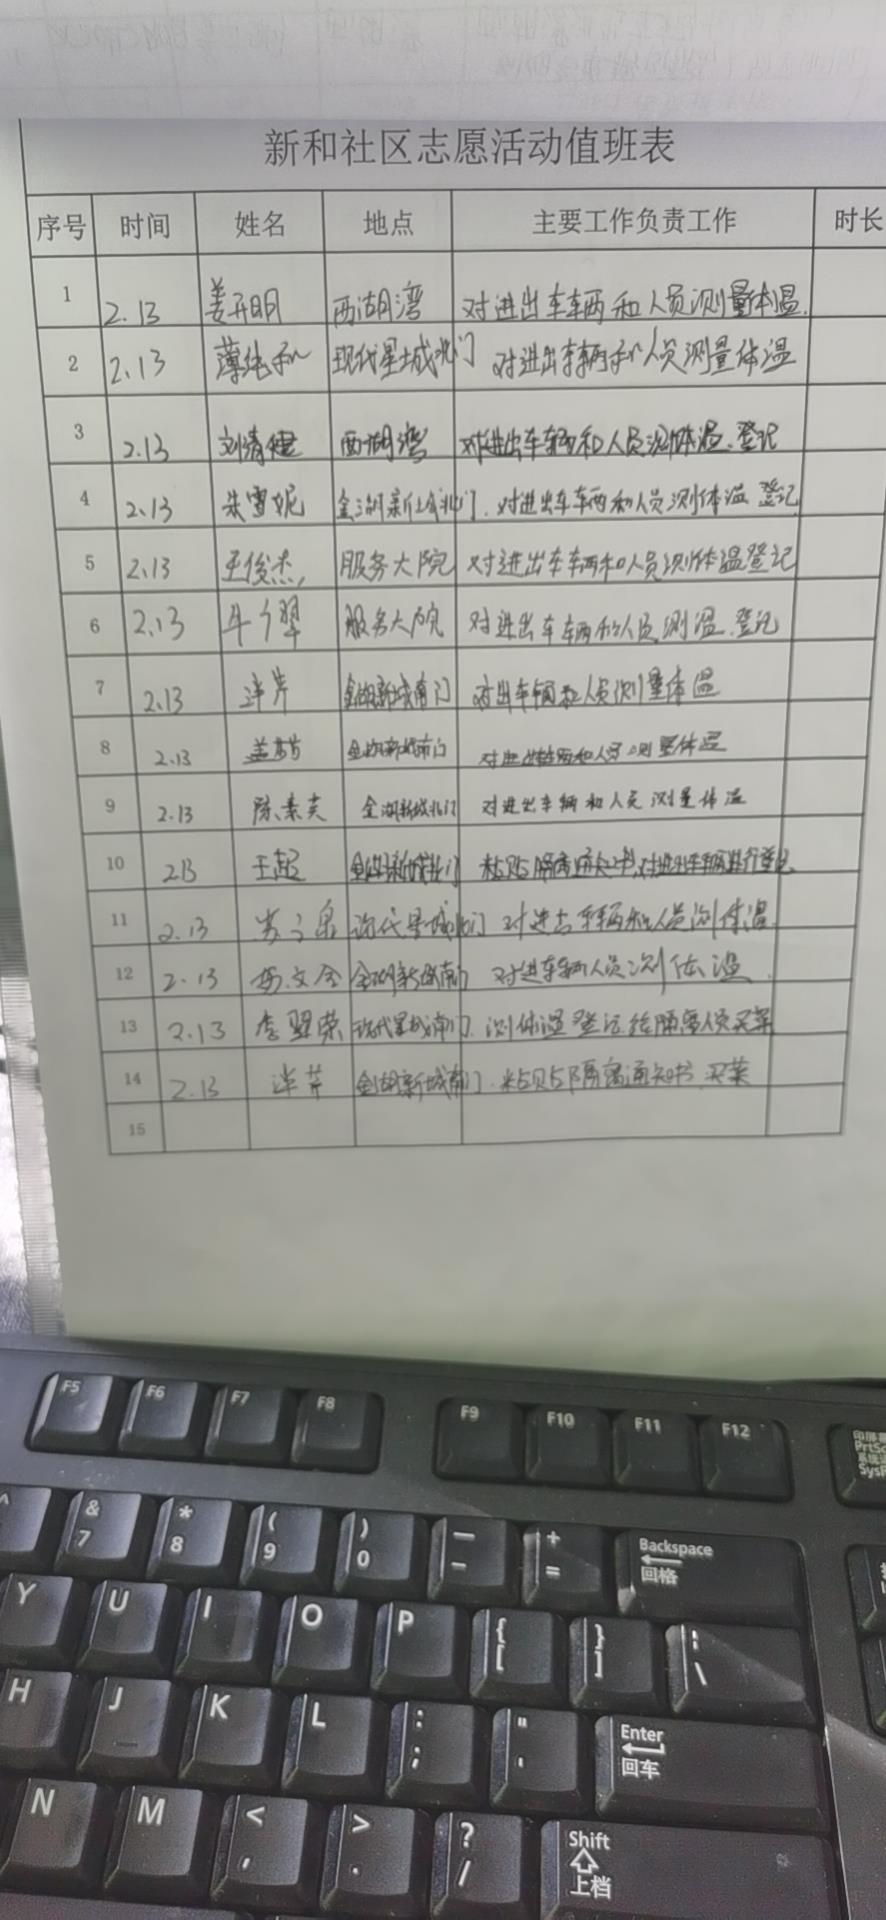 新和社区志愿活动值班表
序号 时间 姓名 地点 主要工作负责工作 时长
1 2.13 姜开明 西湖湾 对进出车辆和人员测量体温.
2 2.13 薄纯和 现代星城北门 对进出车辆和人员测量体温
3 2.13 刘清健 西湖湾 对进出车辆和人员测体温.登记
4 2.13 朱雪妮 金湖新城北门. 对进出车辆和人员测体温 登记
5 2.13 王俊杰 服务大院 对进出车辆和人员测体温登记
6 2.13 服务大院 对进出车辆和人员测温.登记
7 2.13 金湖新城南门 对出车辆和人员测量体温
8 2.13 金湖新城南门 对进出车辆和人员测量体温
9 2.13 陈素芙 金湖新城北门 对进出车辆和人员测量体温
10 213 王超 金湖新城北门 粘贴隔离通知书,对进出车辆进行登记
11 2.13 现代星城北门 对进出车辆和人员测体温
12 2.13 金湖新城南门 对进车辆人员测体温.
13 2.13 李翠荣 现代星城南门. 测体温登记给隔离人员买菜
14 2.13 金湖新城南门. 粘贴隔离通知书.买菜
15
F5 F6 F7 F8 F9 F10 F11 F12 PrtSc
& 7 * 8 ( 9 ) 0 — - + = Backspace 回格
Y U I O P { [ } ] \
H J K L : ; " ' Enter 回车
N M < , > . ? / Shift 上档